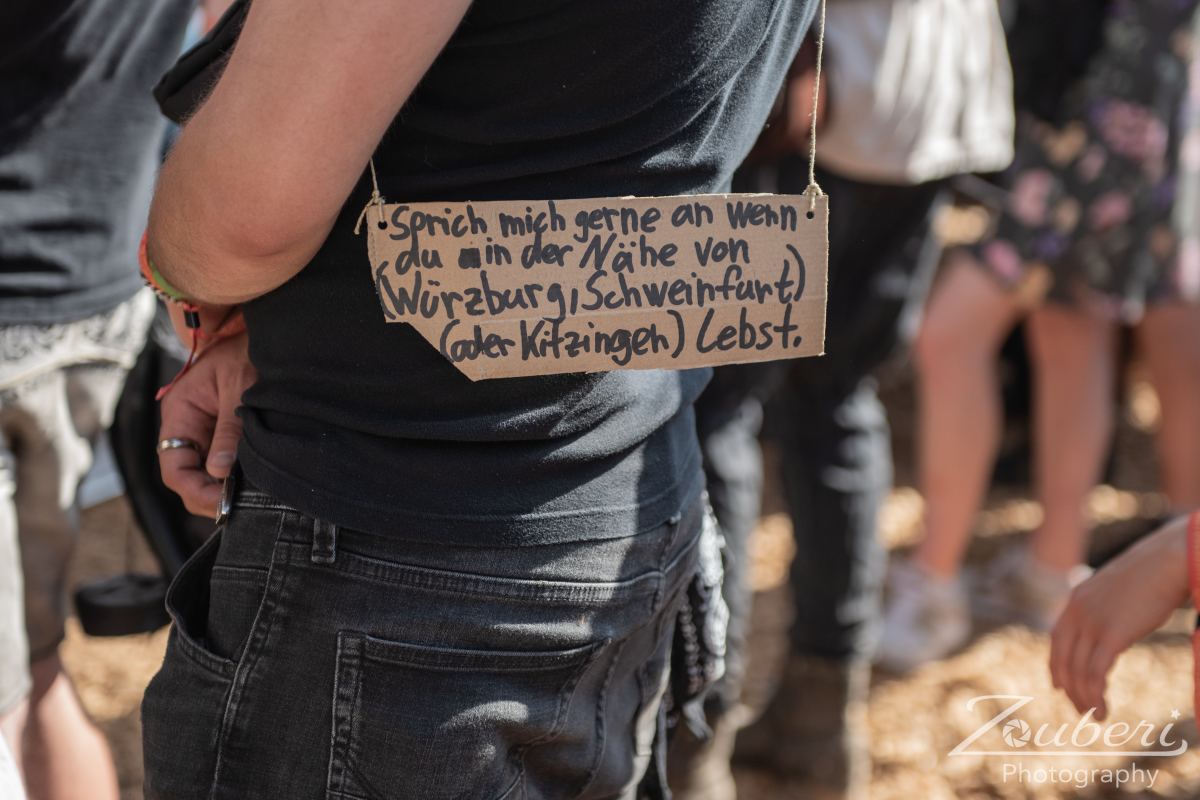 Sprich mich gerne an wenn
du in der Nähe von
(Würzburg, Schweinfurt)
(oder Kitzingen) Lebst.
Zouberi
Photography